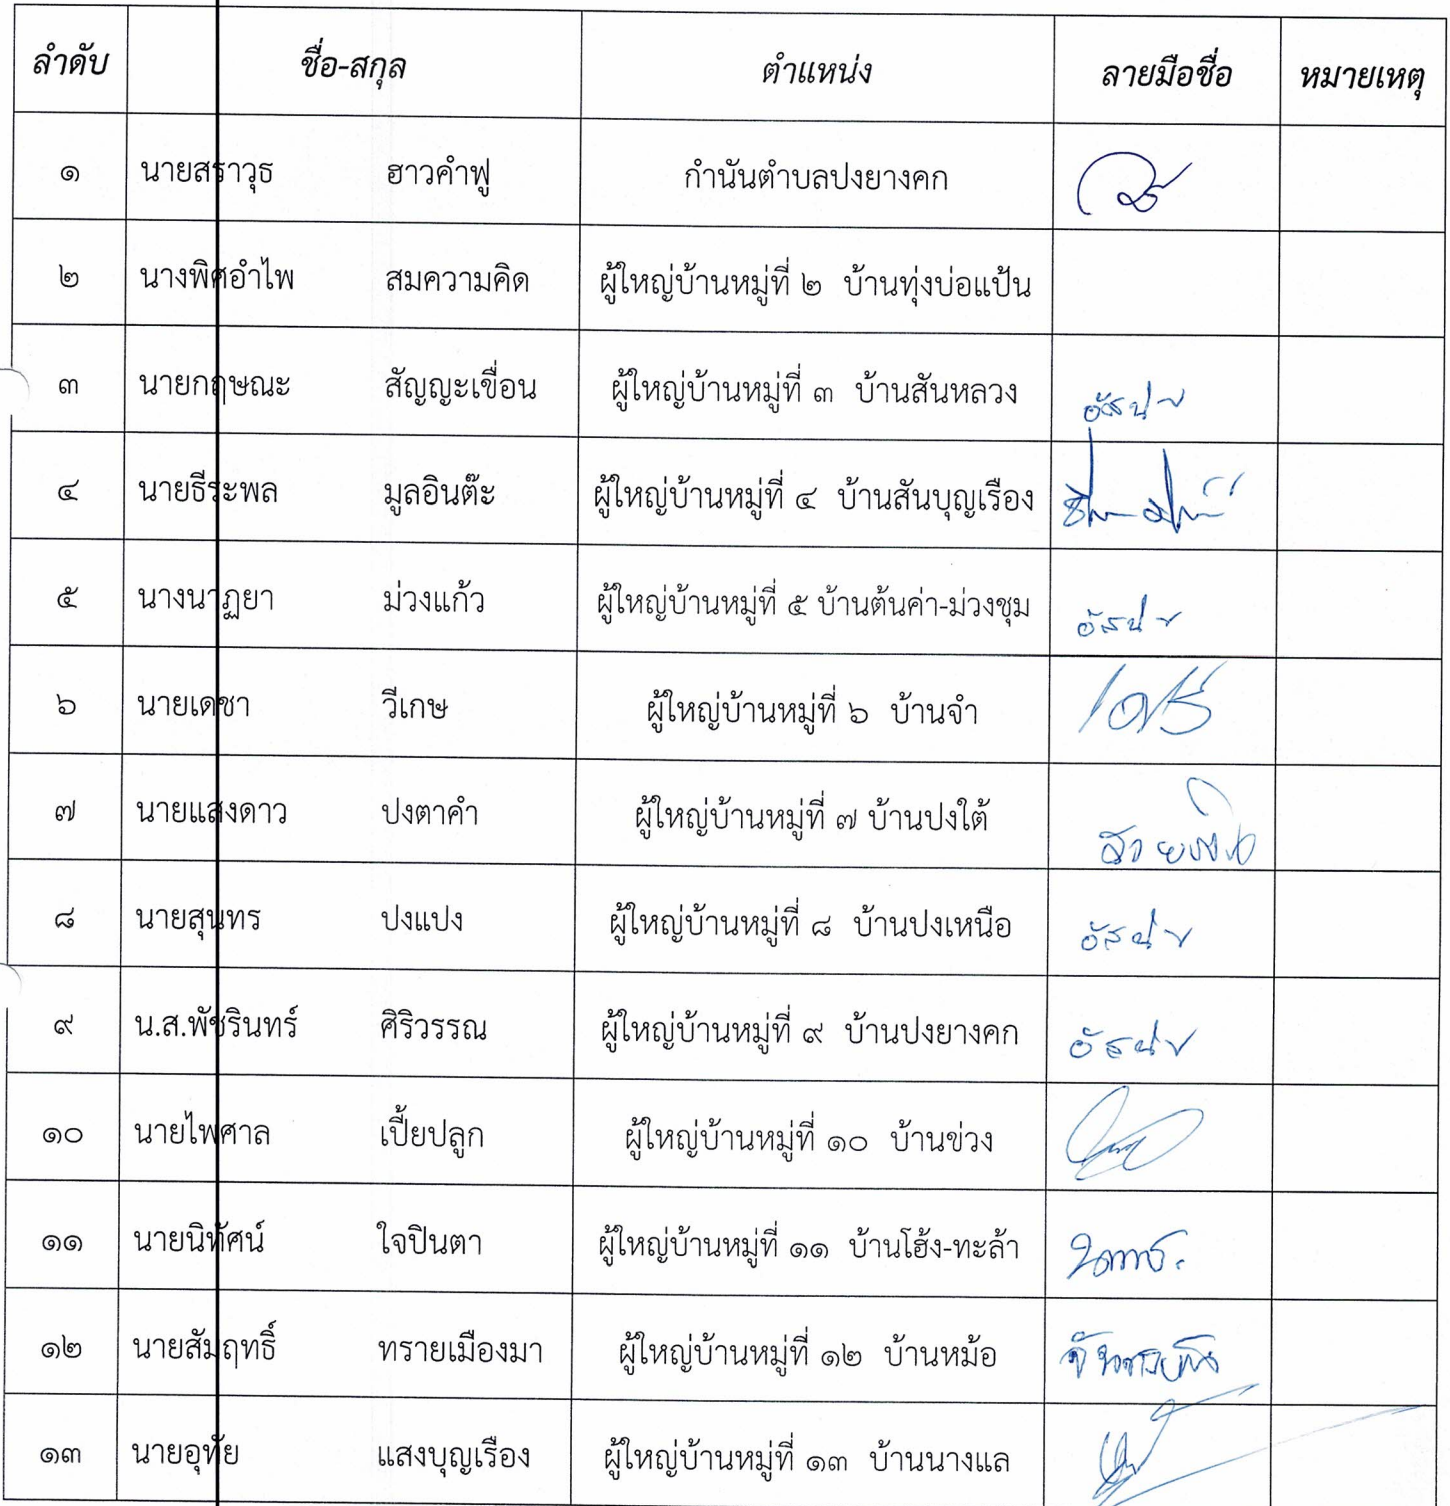 ลำดับ ชื่อ-สกุล ตำแหน่ง ลายมือชื่อ หมายเหตุ
๑ นายสราวุธ ฮาวคำฟู กำนันตำบลปงยางคก
๒ นางพิศอำไพ สมความคิด ผู้ใหญ่บ้านหมู่ที่ ๒ บ้านทุ่งบ่อแป้น
๓ นายกฤษณะ สัญญะเขื่อน ผู้ใหญ่บ้านหมู่ที่ ๓ บ้านสันหลวง
๔ นายธีระพล มูลอินต๊ะ ผู้ใหญ่บ้านหมู่ที่ ๔ บ้านสันบุญเรือง
๕ นางนาฏยา ม่วงแก้ว ผู้ใหญ่บ้านหมู่ที่ ๕ บ้านต้นค่า-ม่วงชุม
๖ นายเดชา วีเกษ ผู้ใหญ่บ้านหมู่ที่ ๖ บ้านจำ
๗ นายแสงดาว ปงตาคำ ผู้ใหญ่บ้านหมู่ที่ ๗ บ้านปงใต้
๘ นายสุนทร ปงแปง ผู้ใหญ่บ้านหมู่ที่ ๘ บ้านปงเหนือ
๙ น.ส.พัชรินทร์ ศิริวรรณ ผู้ใหญ่บ้านหมู่ที่ ๙ บ้านปงยางคก
๑๐ นายไพศาล เปี้ยปลูก ผู้ใหญ่บ้านหมู่ที่ ๑๐ บ้านข่วง
๑๑ นายนิทัศน์ ใจปินตา ผู้ใหญ่บ้านหมู่ที่ ๑๑ บ้านโฮ้ง-ทะล้า
๑๒ นายสัมฤทธิ์ ทรายเมืองมา ผู้ใหญ่บ้านหมู่ที่ ๑๒ บ้านหม้อ
๑๓ นายอุทัย แสงบุญเรือง ผู้ใหญ่บ้านหมู่ที่ ๑๓ บ้านนางแล